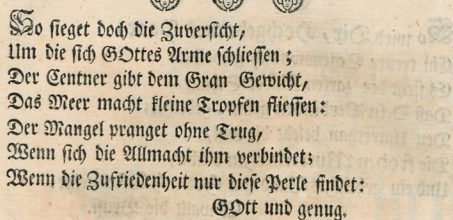 So sieget doch die Zuversicht,
Um die sich GOttes Arme schliessen;
Der Centner gibt dem Gran Gewicht,
Das Meer macht kleine Tropfen fliessen:
Der Mangel pranget ohne Trug,
Wenn sich die Allmacht ihm verbindet:
Wenn die Zufriedenheit nur diese Perle findet:
GOtt und genug.